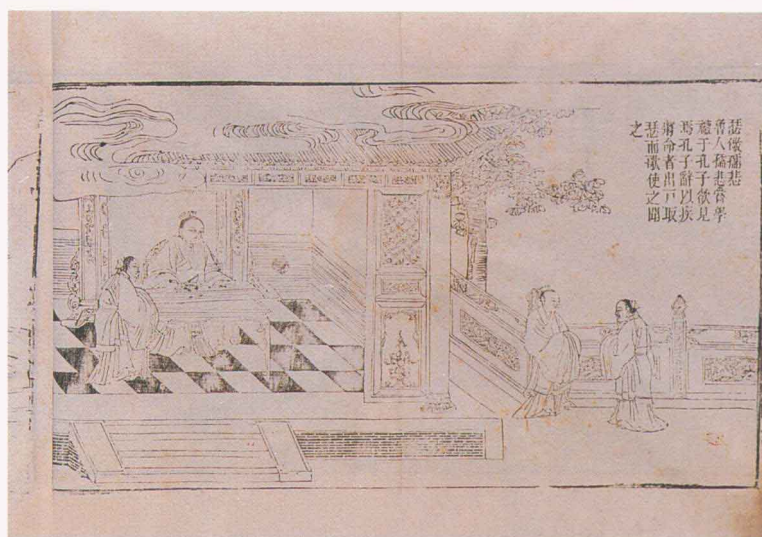 瑟儆孺悲
魯人孺悲嘗學
禮于孔子欲見
焉孔子辭以疾
將命者出戶取
瑟而歌使之聞
之